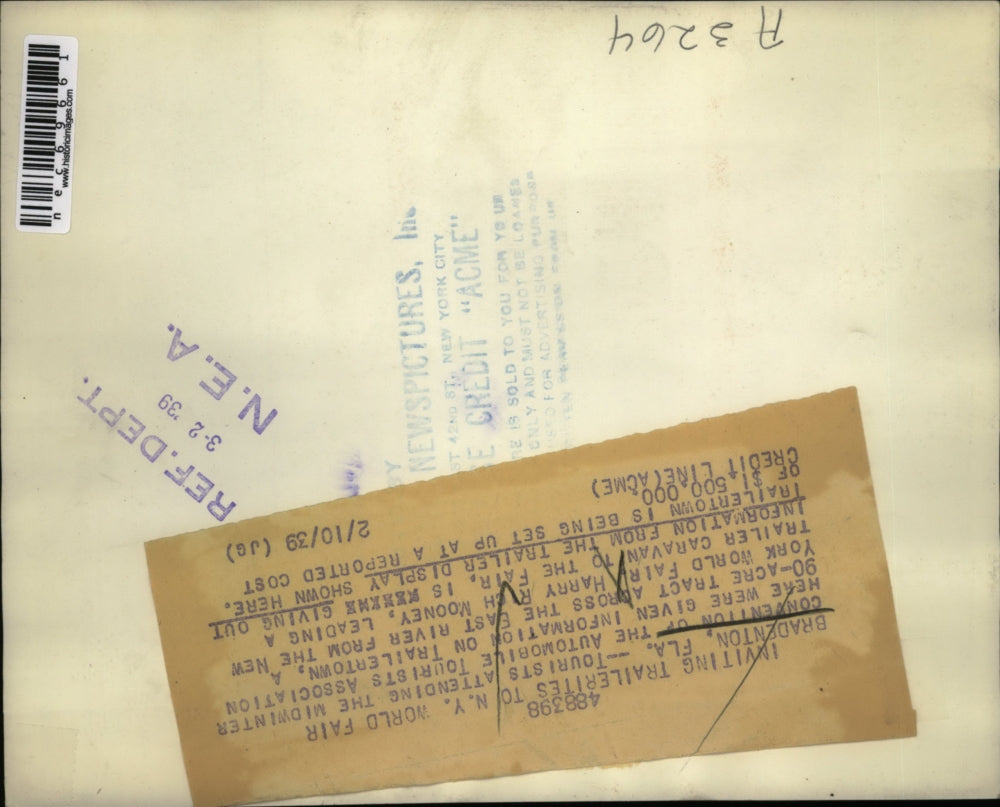 A 3264
n e c 6 9 6 6 1
www.historicimages.com
NEWSPICTURES, Inc
ST 42ND ST. NEW YORK CITY
CREDIT "ACME"
RE IS SOLD TO YOU FOR
ONLY AND MUST NOT BE LOANED
FOR ADVERTISING PURPOSE
REF. DEPT.
3-2 '39
N.E.A.
488398
INVITING TRAILERITES TO N.Y. WORLD FAIR
BRADENTON, FLA. --TOURISTS ATTENDING THE MIDWINTER
CONVENTION OF THE AUTOMOBILE TOURISTS ASSOCIATION
HERE WERE GIVEN INFORMATION ON TRAILERTOWN, A
90-ACRE TRACT ACROSS THE EAST RIVER FROM THE NEW
YORK WORLD FAIR. HARRY FRENCH MOONEY, LEADING A
TRAILER CARAVAN TO THE FAIR, IS GIVING OUT
INFORMATION FROM THE TRAILER DISPLAY SHOWN HERE.
TRAILERTOWN IS BEING SET UP AT A REPORTED COST
OF $1,500,000.
CREDIT LINE(ACME) 2/10/39 (JG)